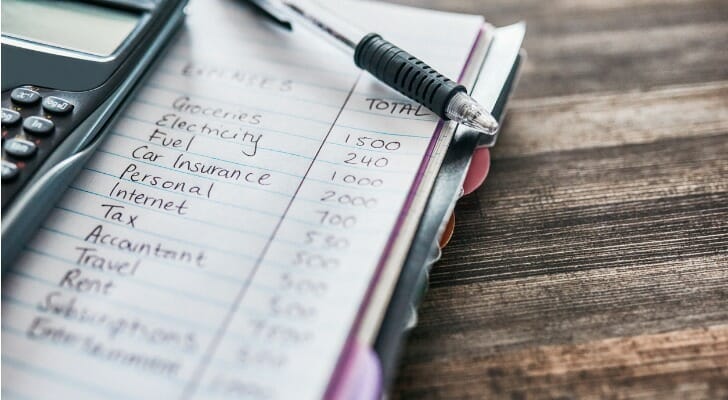 EXPENSES TOTAL
Groceries 1500
Electricity 240
Fuel 1000
Car Insurance 2000
Personal 700
Internet
Tax 500
Accountant
Travel
Rent
Subscriptions
Entertainment